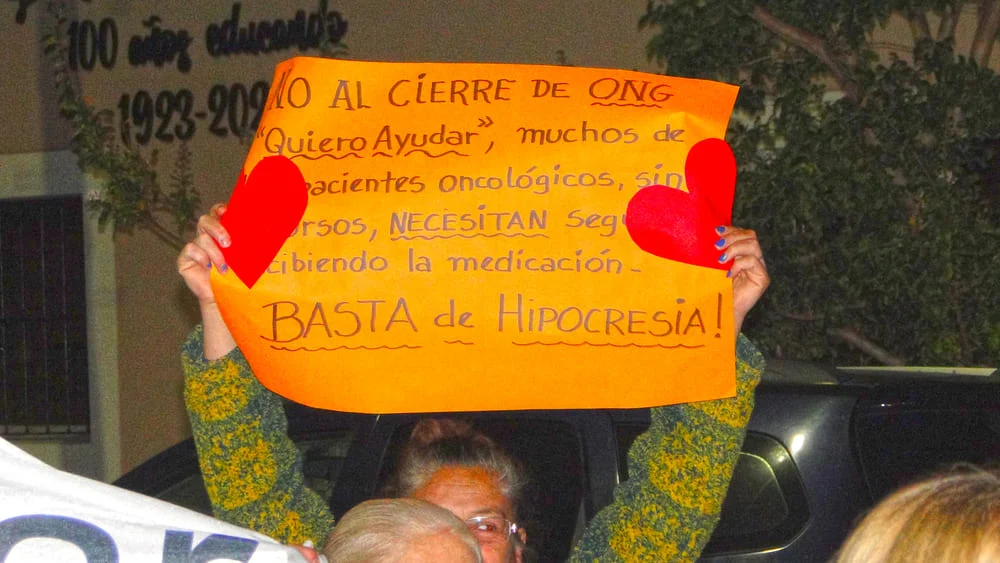 100 años educando
1923-202
NO AL CIERRE DE ONG
"Quiero Ayudar", muchos de
pacientes oncológicos, sin
NECESITAN
la medicación.
BASTA de HIPOCRESIA!
or